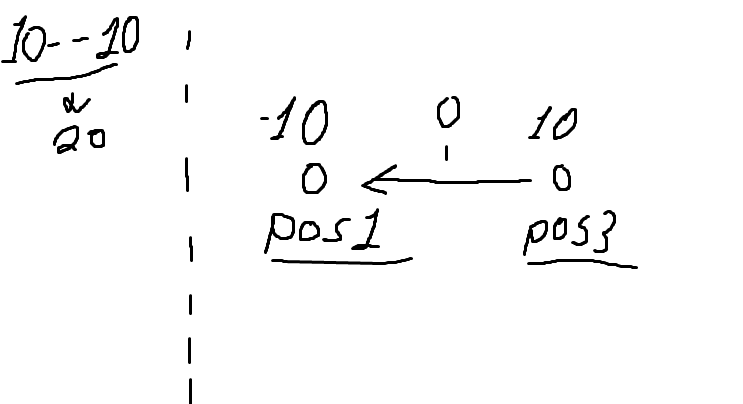 10--10
20
-10 0 10
0 0
pos1 pos3